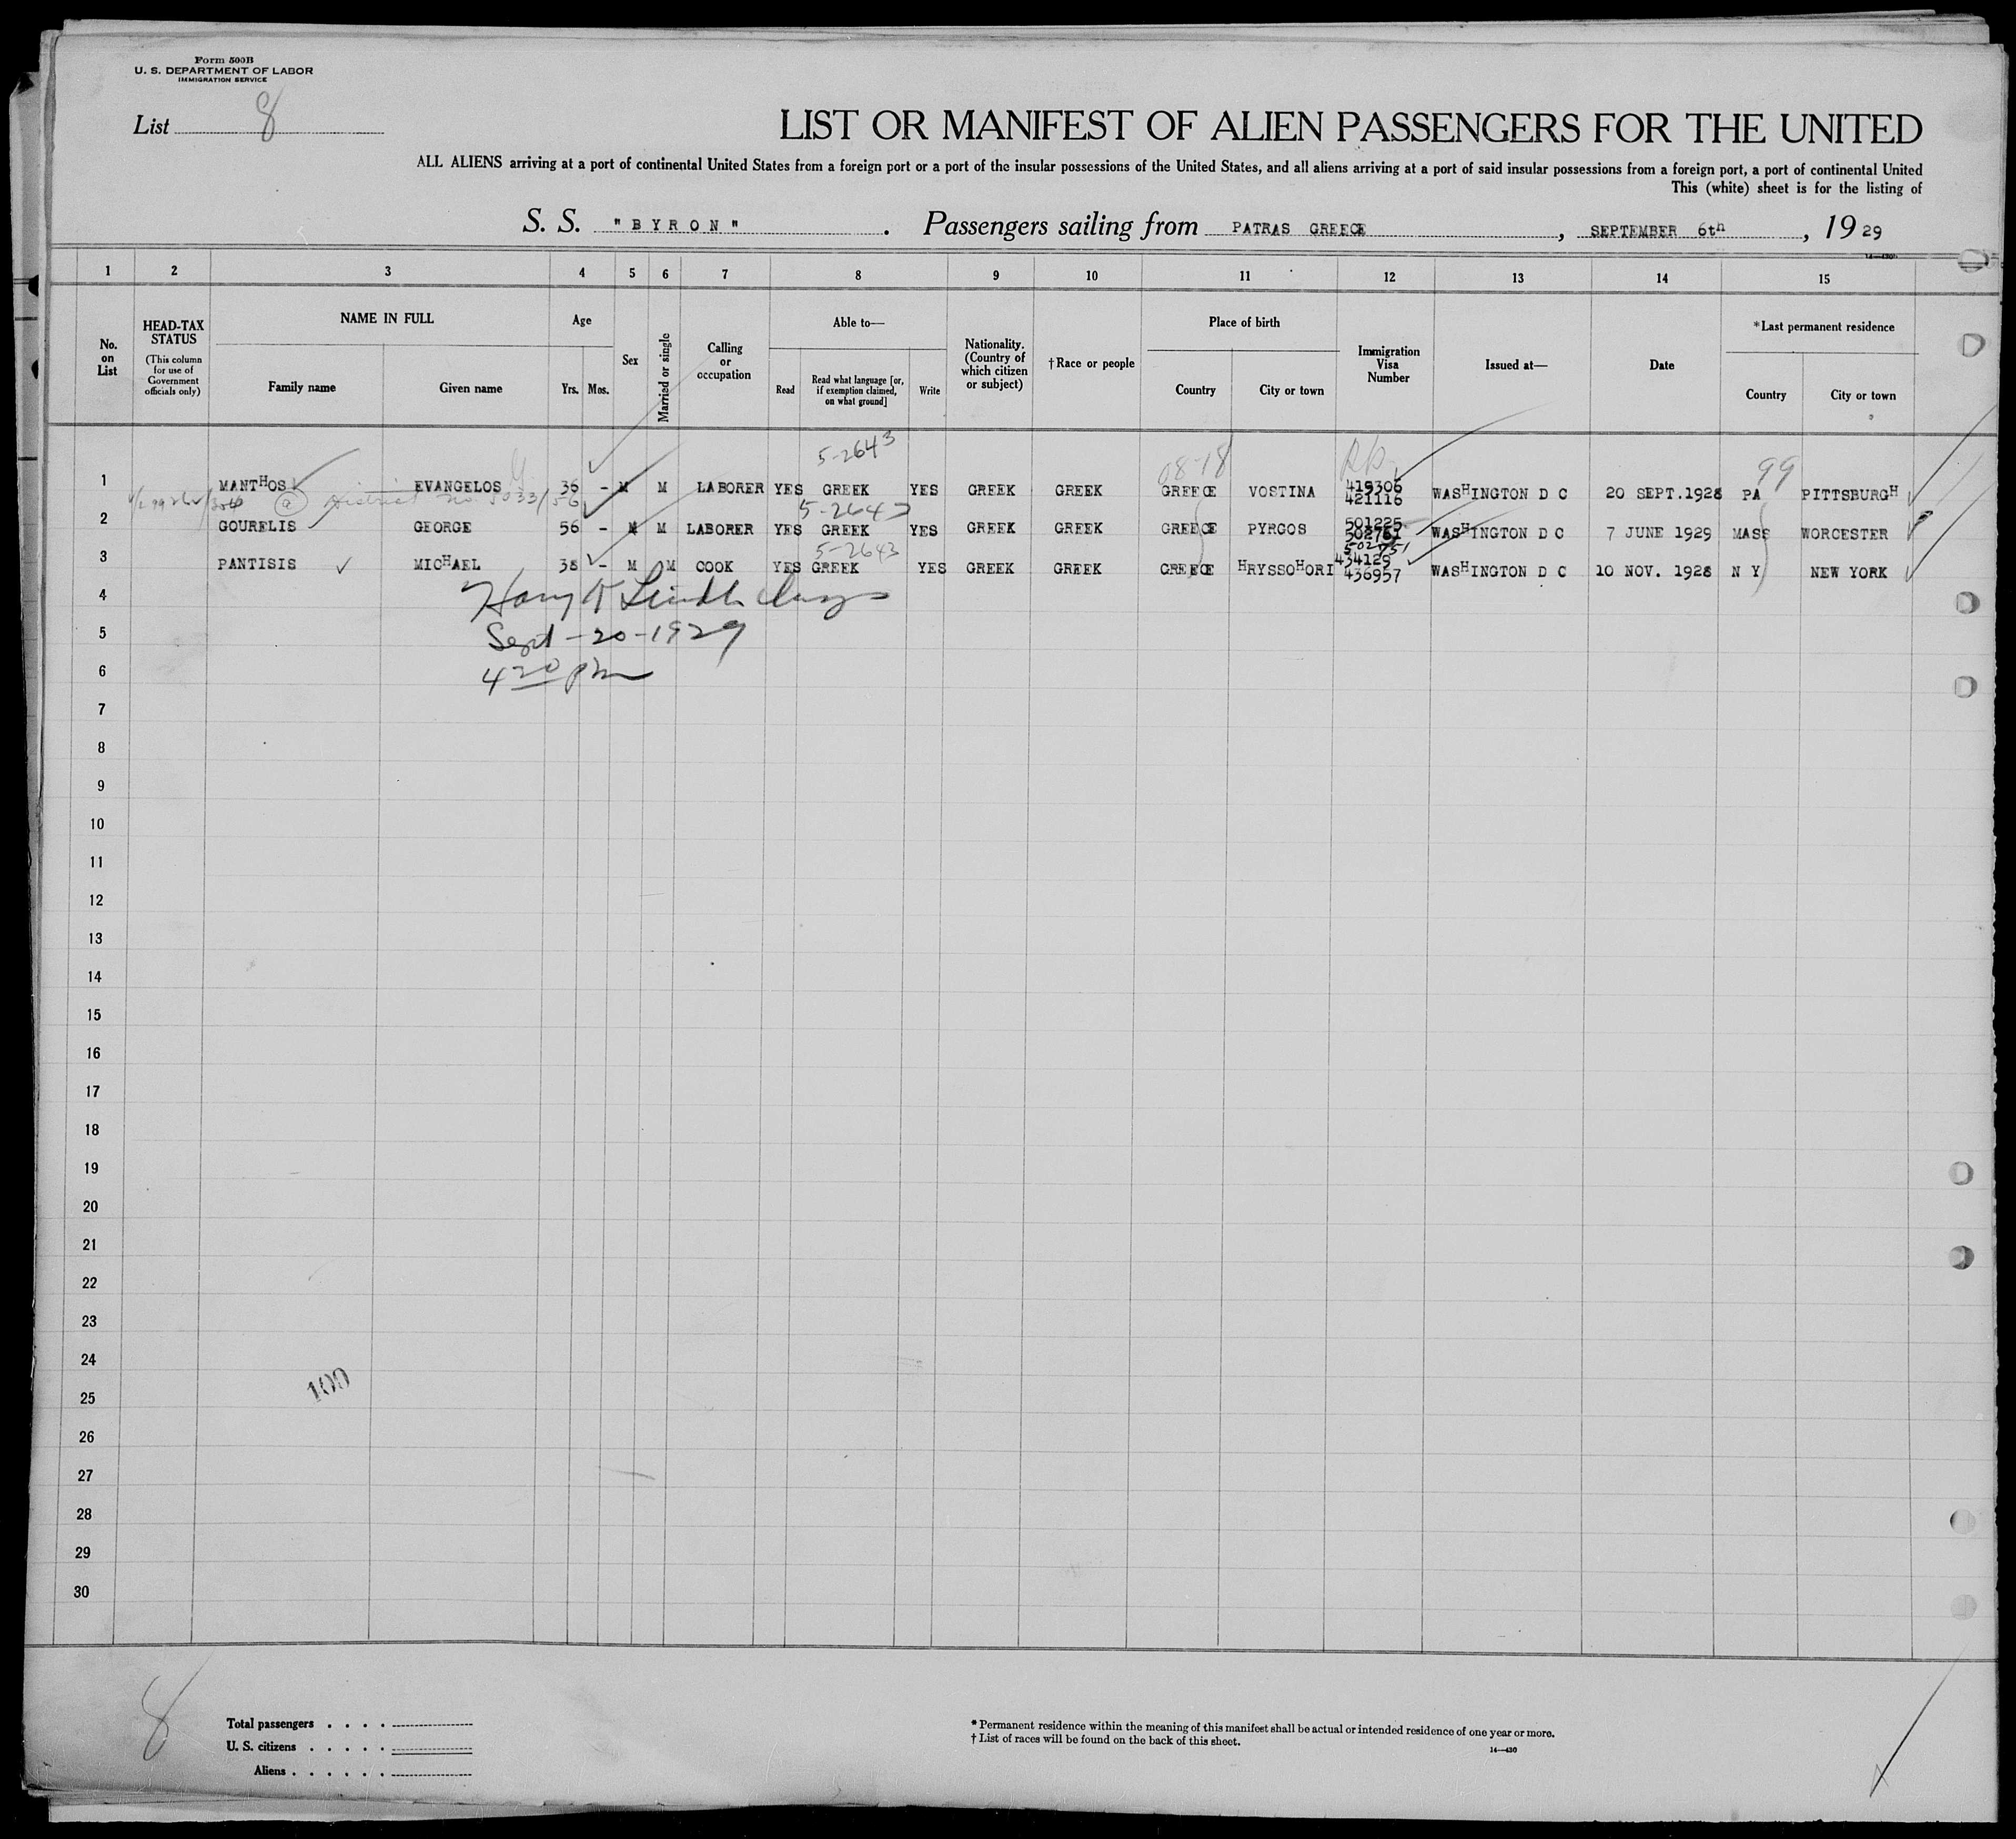 Form 500B
U. S. DEPARTMENT OF LABOR
IMMIGRATION SERVICE
List 8
LIST OR MANIFEST OF ALIEN PASSENGERS FOR THE UNITED
ALL ALIENS arriving at a port of continental United States from a foreign port or a port of the insular possessions of the United States, and all aliens arriving at a port of said insular possessions from a foreign port, a port of continental United
This (white) sheet is for the listing of
S. S. "BYRON" . Passengers sailing from PATRAS GREECE , SEPTEMBER 6th , 1929
1 2 3 4 5 6 7 8 9 10 11 12 13 14 15
No. on List
HEAD-TAX STATUS (This column for use of Government officials only)
NAME IN FULL
Family name Given name
Age
Yrs. Mos.
Sex
Married or single
Calling or occupation
Able to—
Read Read what language [or, if exemption claimed, on what ground] Write
Nationality. (Country of which citizen or subject)
†Race or people
Place of birth
Country City or town
Immigration Visa Number
Issued at—
Date
*Last permanent residence
Country City or town
5-2643 08-18 99
1 MANTHOS EVANGELOS 36 - M M LABORER YES GREEK YES GREEK GREEK GREECE VOSTINA 419306 421116 WASHINGTON D C 20 SEPT.1928 PA PITTSBURGH
5-2643
2 GOURELIS GEORGE 56 - M M LABORER YES GREEK YES GREEK GREEK GREECE PYRGOS 501225 WASHINGTON D C 7 JUNE 1929 MASS WORCESTER
5-2643 502751
3 PANTISIS MICHAEL 38 - M M COOK YES GREEK YES GREEK GREEK GREECE HRYSSOHORI 434129 436957 WASHINGTON D C 10 NOV. 1928 N Y NEW YORK
4
5 Sept-20-1929
6 4 20 pm
7
8
9
10
11
12
13
14
15
16
17
18
19
20
21
22
23
24
100
25
26
27
28
29
30
8
Total passengers
U. S. citizens
Aliens
* Permanent residence within the meaning of this manifest shall be actual or intended residence of one year or more.
† List of races will be found on the back of this sheet.
14—430